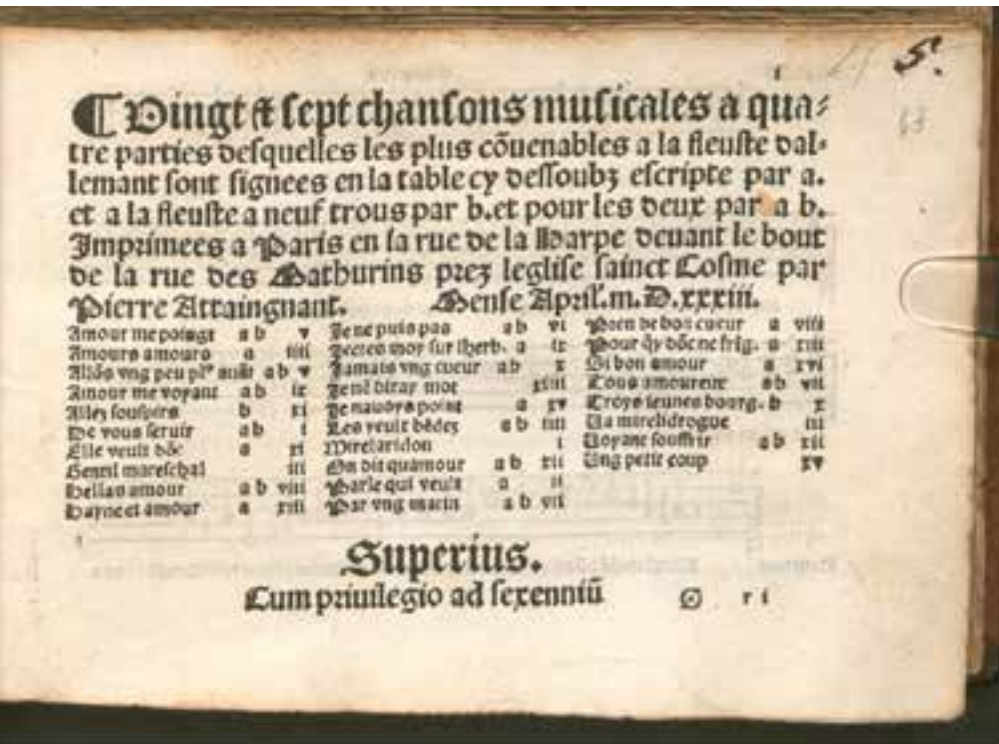 1
S.
13
¶ Vingt & sept chansons musicales a qua-
tre parties desquelles les plus cōuenables a la fleuste dal-
lemant sont signees en la table cy dessoubz escripte par a.
et a la fleuste a neuf trous par b. et pour les deux par a b.
Imprimees a Paris en la rue de la Harpe deuant le bout
de la rue des Mathurins prez leglise sainct Cosme par
Pierre Attaingnant. Mense April. m. D. xxxiii.
Amour me poingt a b v
Amours amours a iiii
Allōs vng peu plꝰ auāt a b v
Amour me voyant a b ix
Allez souspirs b xi
De vous seruir a b i
Elle veult dōc a xi
Gentil mareschal iii
Hellas amour a b viii
Hayne et amour a xiii
Je ne puis pas a b vi
Jectes moy sur lherb. a ix
Jamais vng cueur a b x
Jenē diray mot xiiii
Je nauoys point a xv
Les yeulx bēdez a b iiii
Mirelaridon i
On dit quamour a b xii
Parle qui veult a ii
Par vng matin a b vii
Pren de bon cueur a viii
Pour quoy dōc ne frig. a xiii
Si bon amour a xvi
Tous amoureux a b vii
Troys ieunes bourg. b x
Va mirelidrogue iii
Voyant souffrir a b xii
Ung petit coup xv
Superius.
Cum priuilegio ad sexenniū ri